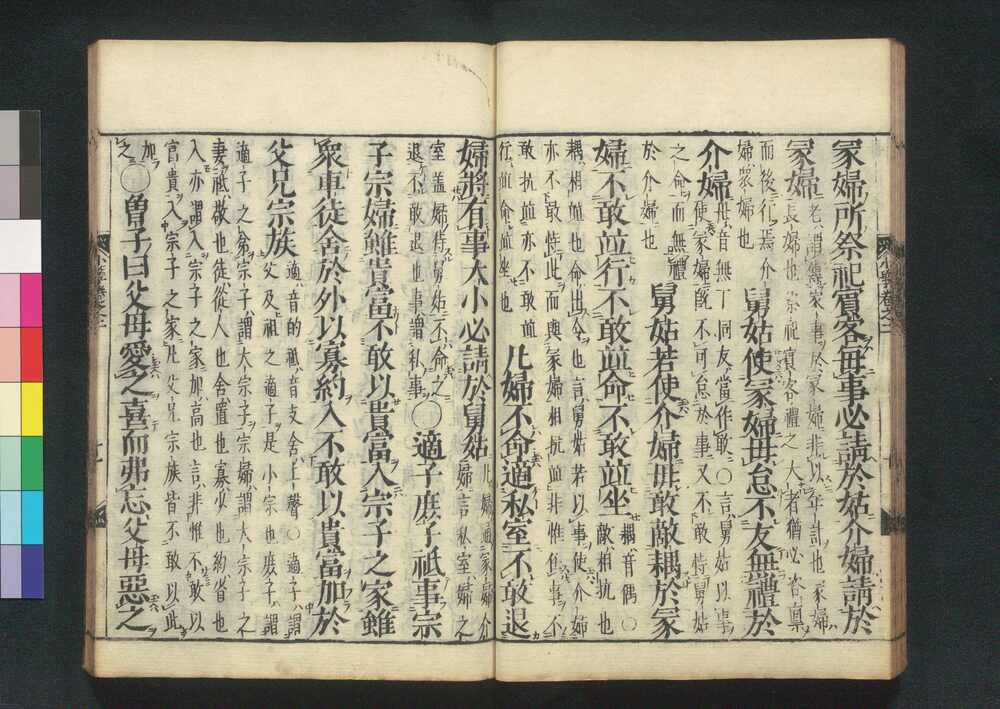 冢婦所祭祀賓客毎事必請於姑介婦請於
冢婦
老謂傳家事於冢婦非以年計也冢婦
長婦也祭祀賓客禮之大者猶必咨稟
而後行焉介
婦衆婦也
舅姑使冢婦毋怠不友無禮於
介婦
毋音無下同友當作敢○言舅姑以事
使冢婦冢婦既不可怠於事又不敢恃舅姑
之命而無禮
於介婦也
舅姑若使介婦毋敢敵耦於冢
婦不敢並行不敢並命不敢並坐
耦音偶○
敵相抗也
耦相並也命出令也言舅姑若以事使介婦
亦不敢恃此而與冢婦相抗並非惟任事亦不
敢抗並亦不敢並
行並命並坐也
凡婦不命適私室不敢退
婦將有事大小必請於舅姑
凡婦通冢婦介
婦言私室婦之
室蓋婦侍舅姑不命之
退不敢退也事謂私事
○適子庶子祗事宗
子宗婦雖貴富不敢以貴富入宗子之家雖
衆車徒舍於外以寡約入不敢以貴富加於
父兄宗族
適音的祗音支舍上聲○適子謂
父及祖之適子是小宗也庶子謂
適子之弟宗子謂大宗子宗婦謂大宗子之
妻祗敬也徒從人也舍置也寡少也約省也
入亦謂入宗子之家加高也言非惟不敢以
富貴入宗子之家凡父兄宗族皆不敢以此
加之
○曾子曰父母愛之喜而弗忘父母惡之